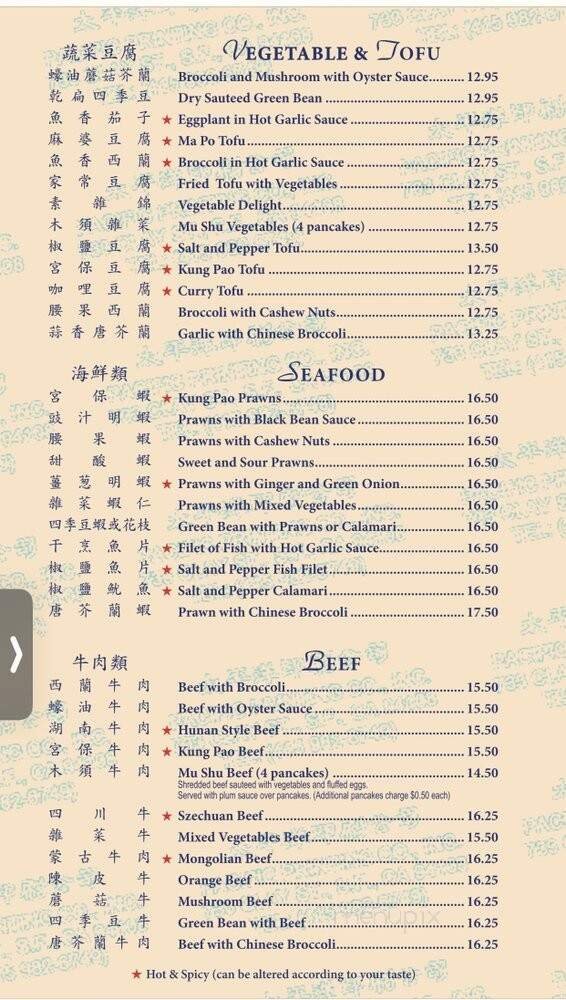 蔬菜豆腐 VEGETABLE & TOFU
蠔油蘑菇芥蘭 Broccoli and Mushroom with Oyster Sauce.......... 12.95
乾扁四季豆 Dry Sauteed Green Bean .......... 12.95
魚香茄子 ★ Eggplant in Hot Garlic Sauce .......... 12.75
麻婆豆腐 ★ Ma Po Tofu.......... 12.75
魚香西蘭 ★ Broccoli in Hot Garlic Sauce .......... 12.75
家常豆腐 Fried Tofu with Vegetables .......... 12.75
素雜錦 Vegetable Delight.......... 12.75
木須雜菜 Mu Shu Vegetables (4 pancakes) .......... 12.75
椒鹽豆腐 ★ Salt and Pepper Tofu.......... 13.50
宮保豆腐 ★ Kung Pao Tofu .......... 12.75
咖哩豆腐 ★ Curry Tofu .......... 12.75
腰果西蘭 Broccoli with Cashew Nuts.......... 12.75
蒜香唐芥蘭 Garlic with Chinese Broccoli.......... 13.25
海鮮類 SEAFOOD
宮保蝦 ★ Kung Pao Prawns.......... 16.50
豉汁明蝦 Prawns with Black Bean Sauce .......... 16.50
腰果蝦 Prawns with Cashew Nuts .......... 16.50
甜酸蝦 Sweet and Sour Prawns.......... 16.50
薑葱明蝦 ★ Prawns with Ginger and Green Onion.......... 16.50
雜菜蝦仁 Prawns with Mixed Vegetables.......... 16.50
四季豆蝦或花枝 Green Bean with Prawns or Calamari.......... 16.50
干烹魚片 ★ Filet of Fish with Hot Garlic Sauce.......... 16.50
椒鹽魚片 ★ Salt and Pepper Fish Filet.......... 16.50
椒鹽魷魚 ★ Salt and Pepper Calamari.......... 16.50
唐芥蘭蝦 Prawn with Chinese Broccoli .......... 17.50
牛肉類 BEEF
西蘭牛肉 Beef with Broccoli.......... 15.50
蠔油牛肉 Beef with Oyster Sauce .......... 15.50
湖南牛肉 ★ Hunan Style Beef .......... 15.50
宮保牛肉 ★ Kung Pao Beef.......... 15.50
木須牛肉 Mu Shu Beef (4 pancakes) .......... 14.50
Shredded beef sauteed with vegetables and fluffed eggs.
Served with plum sauce over pancakes. (Additional pancakes charge $0.50 each)
四川牛 ★ Szechuan Beef.......... 16.25
雜菜牛 Mixed Vegetables Beef.......... 15.50
蒙古牛肉 ★ Mongolian Beef.......... 16.25
陳皮牛 Orange Beef .......... 16.25
蘑菇牛 Mushroom Beef .......... 16.25
四季豆牛 Green Bean with Beef .......... 16.25
唐芥蘭牛肉 Beef with Chinese Broccoli.......... 16.25
★ Hot & Spicy (can be altered according to your taste)
menupix